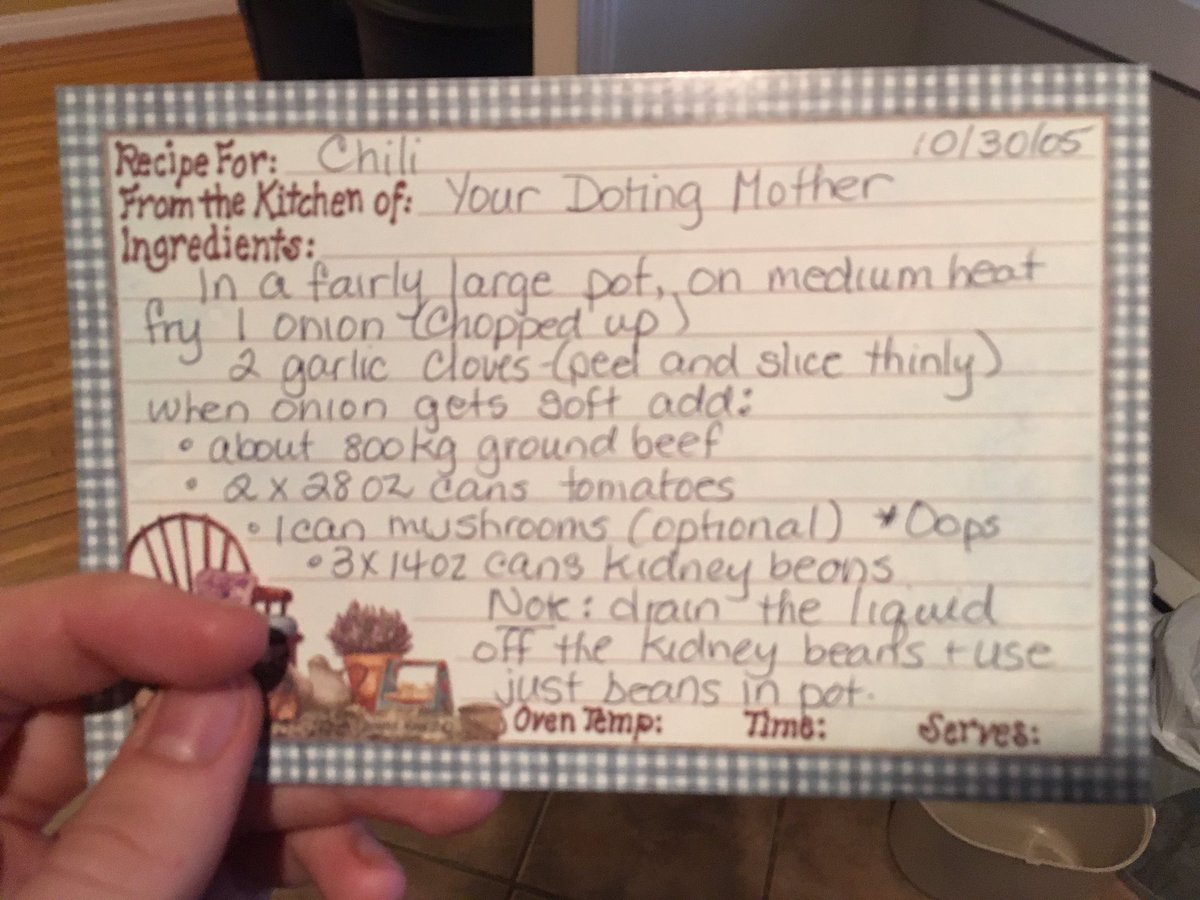 Recipe For: Chili 10/30/05
From the Kitchen of: Your Doting Mother
Ingredients:
In a fairly large pot, on medium heat
fry 1 onion (chopped up)
2 garlic cloves (peel and slice thinly)
when onion gets soft add:
• about 800kg ground beef
• 2 x 28 oz cans tomatoes
• 1 can mushrooms (optional) *Oops
• 3 x 14oz cans kidney beans
Note: drain the liquid
off the kidney beans + use
just beans in pot.
Oven Temp: Time: Serves: